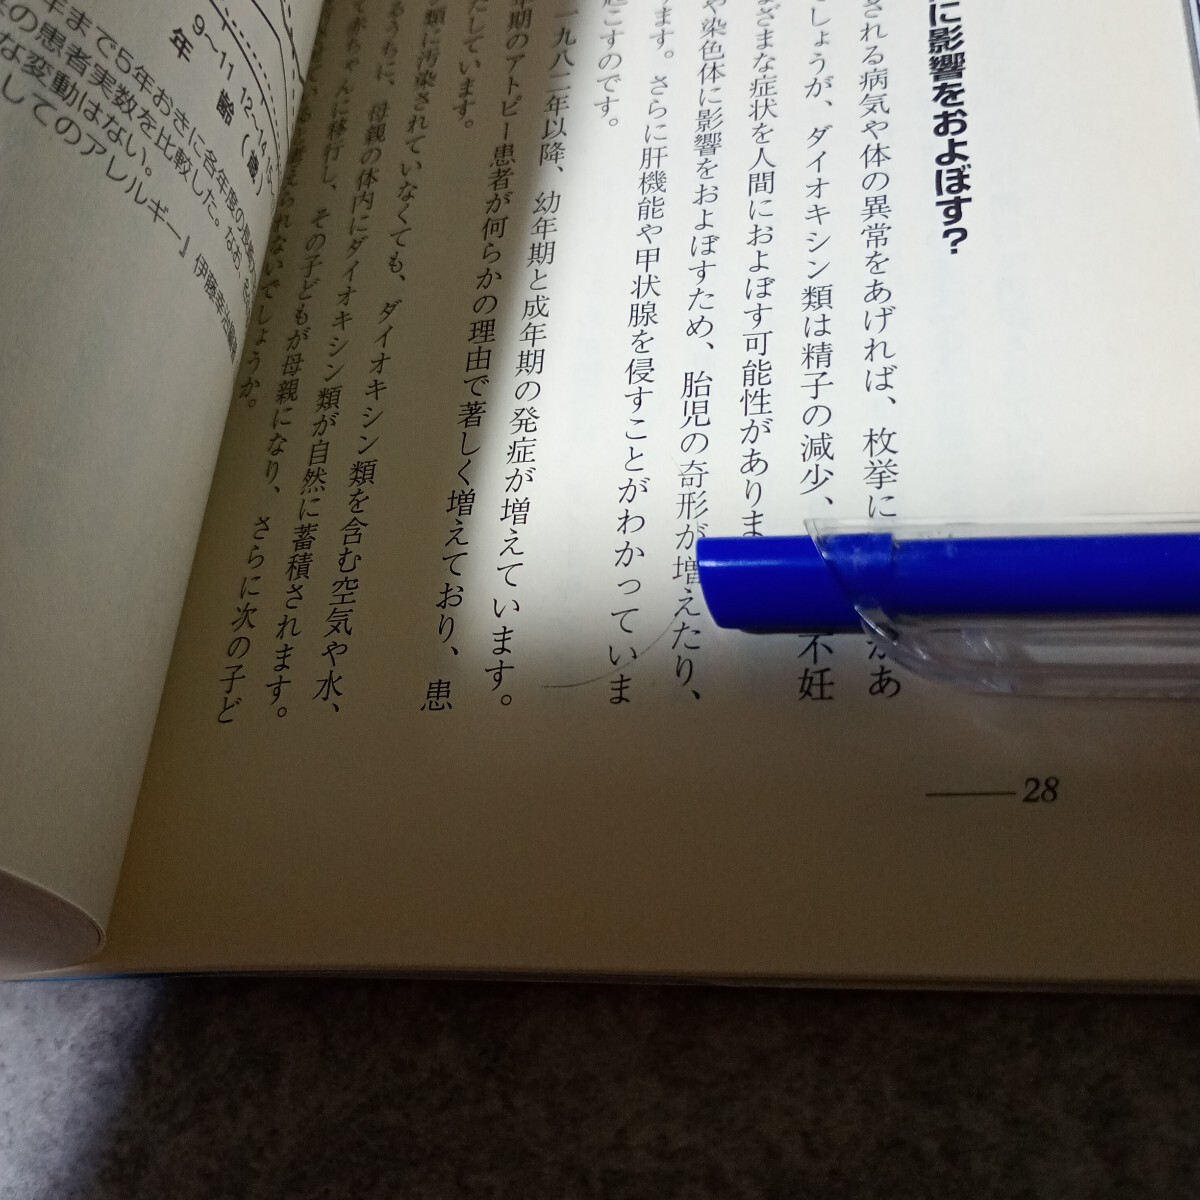 に影響をおよぼす？
される病気や体の異常をあげれば、枚挙に があ
でしょうが、ダイオキシン類は精子の減少、 不妊
ざまな症状を人間におよぼす可能性がありま
や染色体に影響をおよぼすため、胎児の奇形が増えたり、
ます。さらに肝機能や甲状腺を侵すことがわかっていま
起こすのです。
一九八二年以降、幼年期と成年期の発症が増えています。
年期のアトピー患者が何らかの理由で著しく増えており、患
たしています。
シン類に汚染されていなくても、ダイオキシン類を含む空気や水、
るうちに、母親の体内にダイオキシン類が自然に蓄積されます。
て赤ちゃんに移行し、その子どもが母親になり、さらに次の子ど
えられないでしょうか。
28
9〜11 12〜14
年 齢（歳）
年まで5年おきに各年度の
の患者実数を比較した。なお
な変動はない。
してのアレルギー』伊藤幸治編